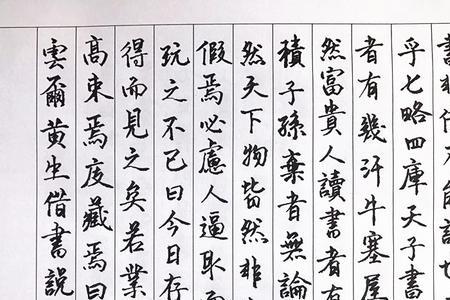 書非借不能讀也
乎七略四庫天子書
者有幾汗牛塞屋
然富貴人讀書者有
積子孫棄者無論
然天下物皆然非
假焉必慮人逼取而
玩之不已曰今日存
得而見之矣若業
高束焉庋藏焉曰
雲爾黄生借書說